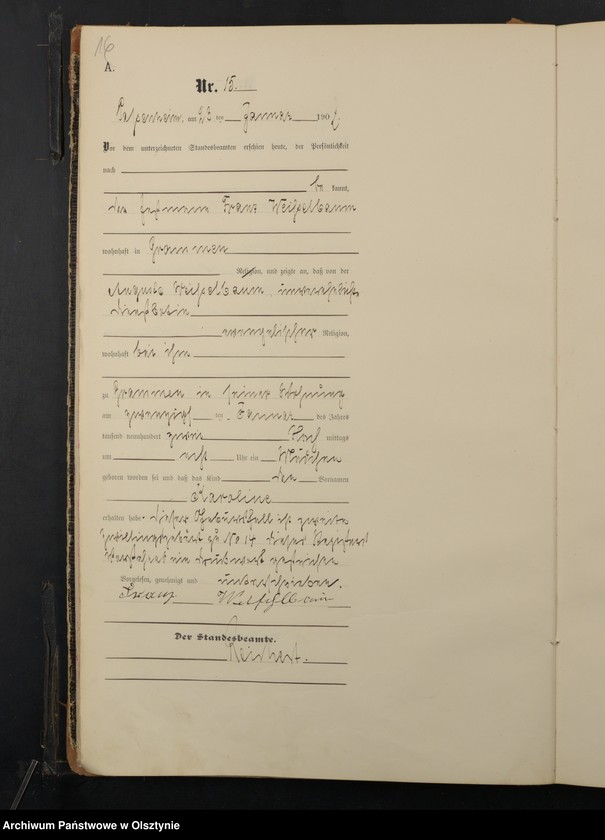 16
A.
Nr. 15.
am 23 ten Januar 190
Vor dem unterzeichneten Standesbeamten erschien heute, der Persönlichkeit
nach
be kannt,
der Franz Weisselbaum
wohnhaft in Grammen
Religion, und zeigte an, daß von der
Auguste Weisselbaum,
evangelischer Religion,
wohnhaft bei ihm
zu Grammen in seiner Wohnung
am zwanzigsten Januar des Jahres
tausend neunhundert zwei Nach mittags
um acht Uhr ein Mädchen
geboren worden sei und daß das Kind den Vornamen
Karoline
erhalten habe. Dieser Geburtsfall ist zweite
Zwillingsgeburt zu No 14 dieses Registers
Vorgelesen, genehmigt und unterschrieben.
Franz Weisselbaum
Der Standesbeamte.
Archiwum Państwowe w Olsztynie